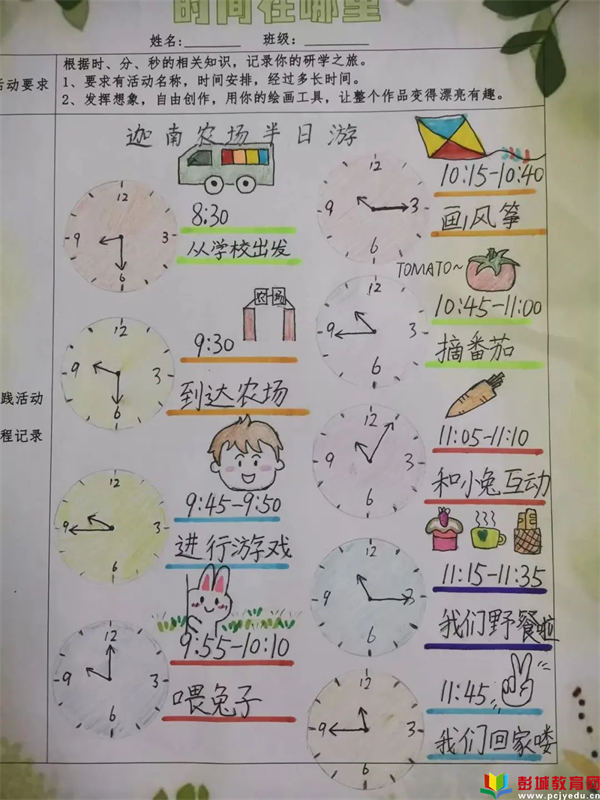 时间在哪里
姓名:________ 班级:________
活动要求
根据时、分、秒的相关知识，记录你的研学之旅。
1、要求有活动名称，时间安排，经过多长时间。
2、发挥想象，自由创作，用你的绘画工具，让整个作品变得漂亮有趣。
践活动
程记录
迦南农场半日游
12
9 3
6
8:30
从学校出发
12
9 3
6
农场
9:30
到达农场
12
9 3
6
9:45-9:50
进行游戏
12
9 3
6
9:55-10:10
喂兔子
12
9 3
6
10:15-10:40
画风筝
12
9 3
6
TOMATO~
10:45-11:00
摘番茄
12
9 3
6
11:05-11:10
和小兔互动
12
9 3
6
11:15-11:35
我们野餐啦
12
9 3
6
11:45
我们回家喽
彭城教育网
www.pcjyedu.cn